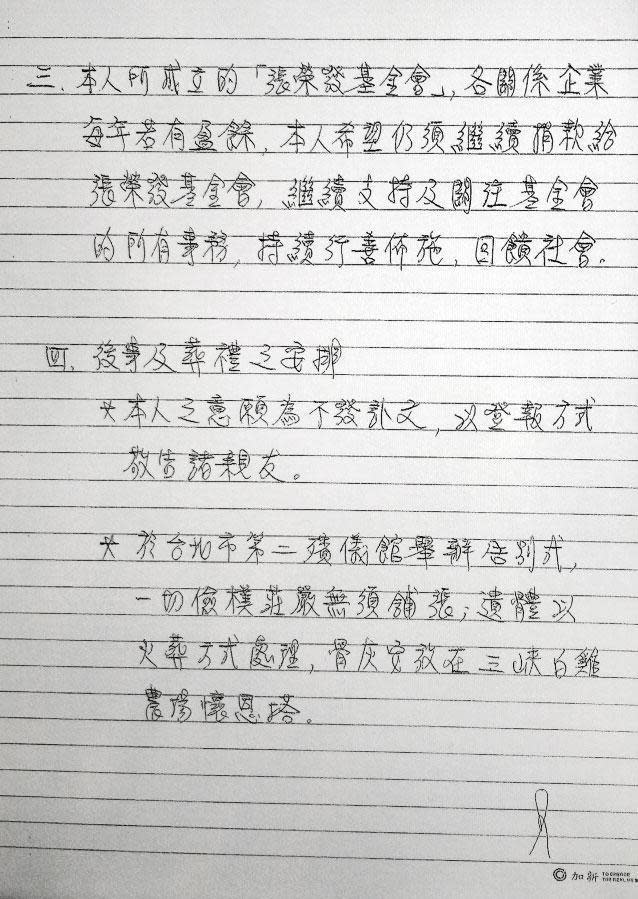 三.本人所成立的「張榮發基金會」,各關係企業
每年若有盈餘,本人希望仍須繼續捐款給
張榮發基金會,繼續支持及關注基金會
的所有事務,持續行善佈施,回饋社會。
四.後事及葬禮之安排
*本人之意願為不發訃文,以登報方式
敬告諸親友。
*於台北市第二殯儀館舉辦告別式,
一切儉樸莊嚴無須舖張;遺體以
火葬方式處理,骨灰安放在三峽白雞
農場懷恩塔。
加新